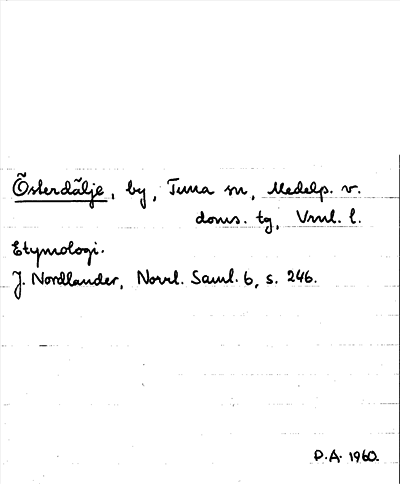 Österdälje, by, Tuna sn, Medelp. v.
doms. tg, Vnl. l.
Etymologi.
J. Nordlander, Norrl. Saml. 6, s. 246.
P.A. 1960.